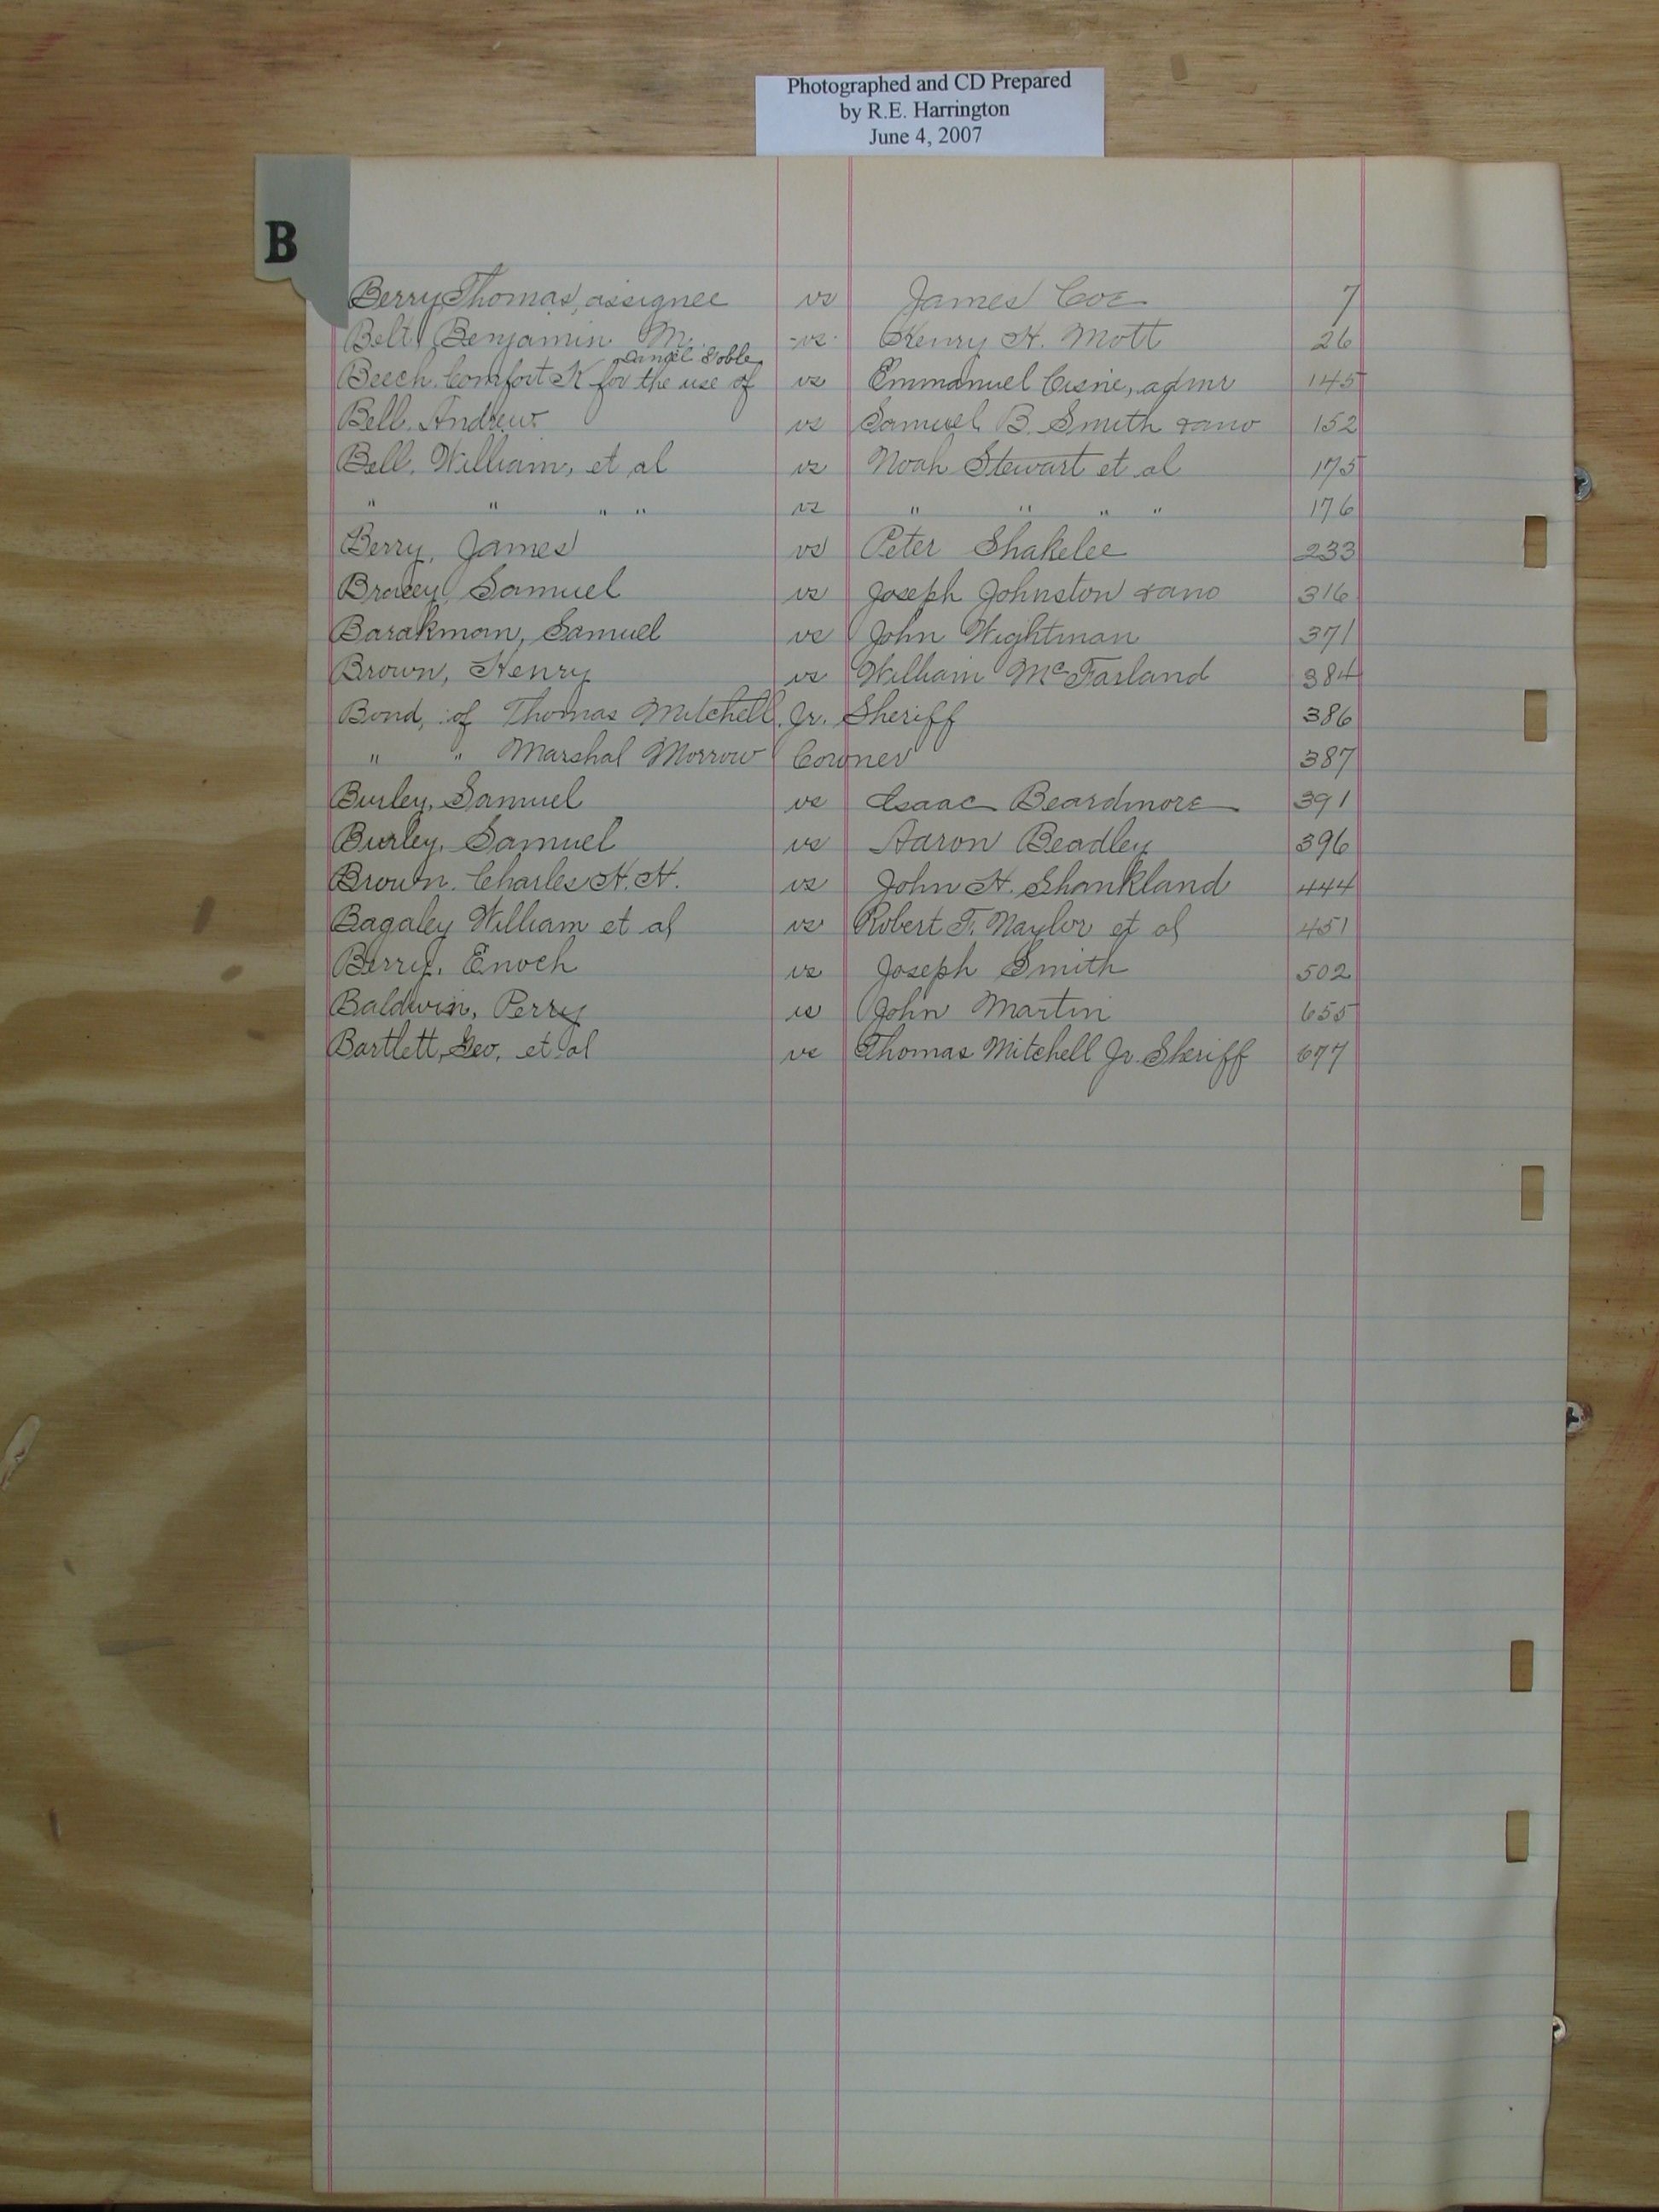 Photographed and CD Prepared
by R.E. Harrington
June 4, 2007
B
Berry, Thomas, assignee vs James Coe 7
Belt, Benjamin M. vs Henry H. Mott 26
Daniel Goble
Beech, Comfort K for the use of vs Emmanuel Cisne, admr 145
Bell, Andrew vs Samuel B. Smith & ano 152
Bell, William, et al vs Noah Stewart et al 175
" " " " vs " " " " 176
Berry, James vs Peter Shakelee 233
Bracey, Samuel vs Joseph Johnston & ano 316
Barakman, Samuel vs John Wightman 371
Brown, Henry vs William McFarland 384
Bond, of Thomas Mitchell, Jr. Sheriff 386
" " Marshal Morrow Coroner 387
Burley, Samuel vs Isaac Beardmore 391
Burley, Samuel vs Aaron Beadley 396
Brown, Charles H. H. vs John H. Shankland 444
Bagaley William et al vs Robert F. Naylor et al 451
Berry, Enoch vs Joseph Smith 502
Baldwin, Perry vs John Martin 655
Bartlett, Geo, et al vs Thomas Mitchell Jr. Sheriff 677